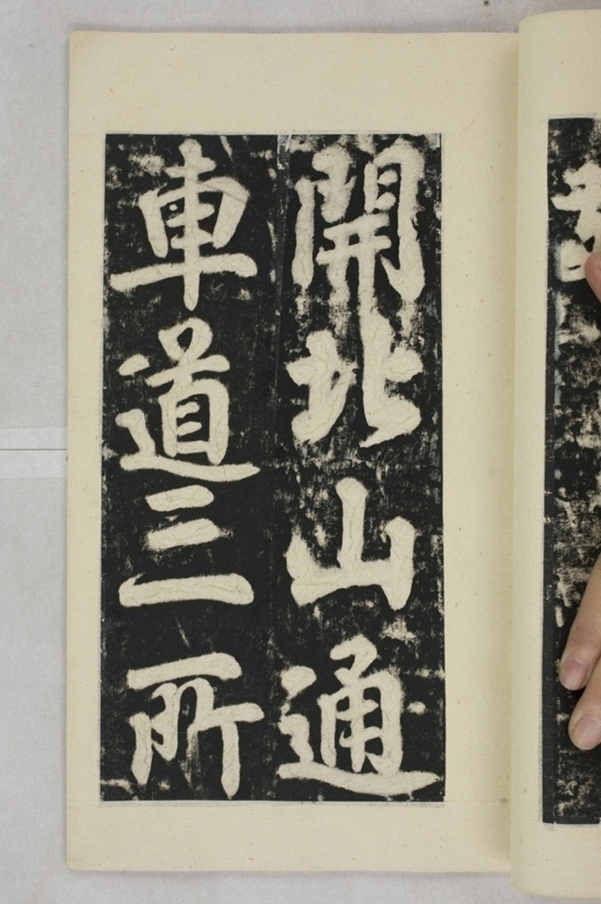 開北山通
車道三所